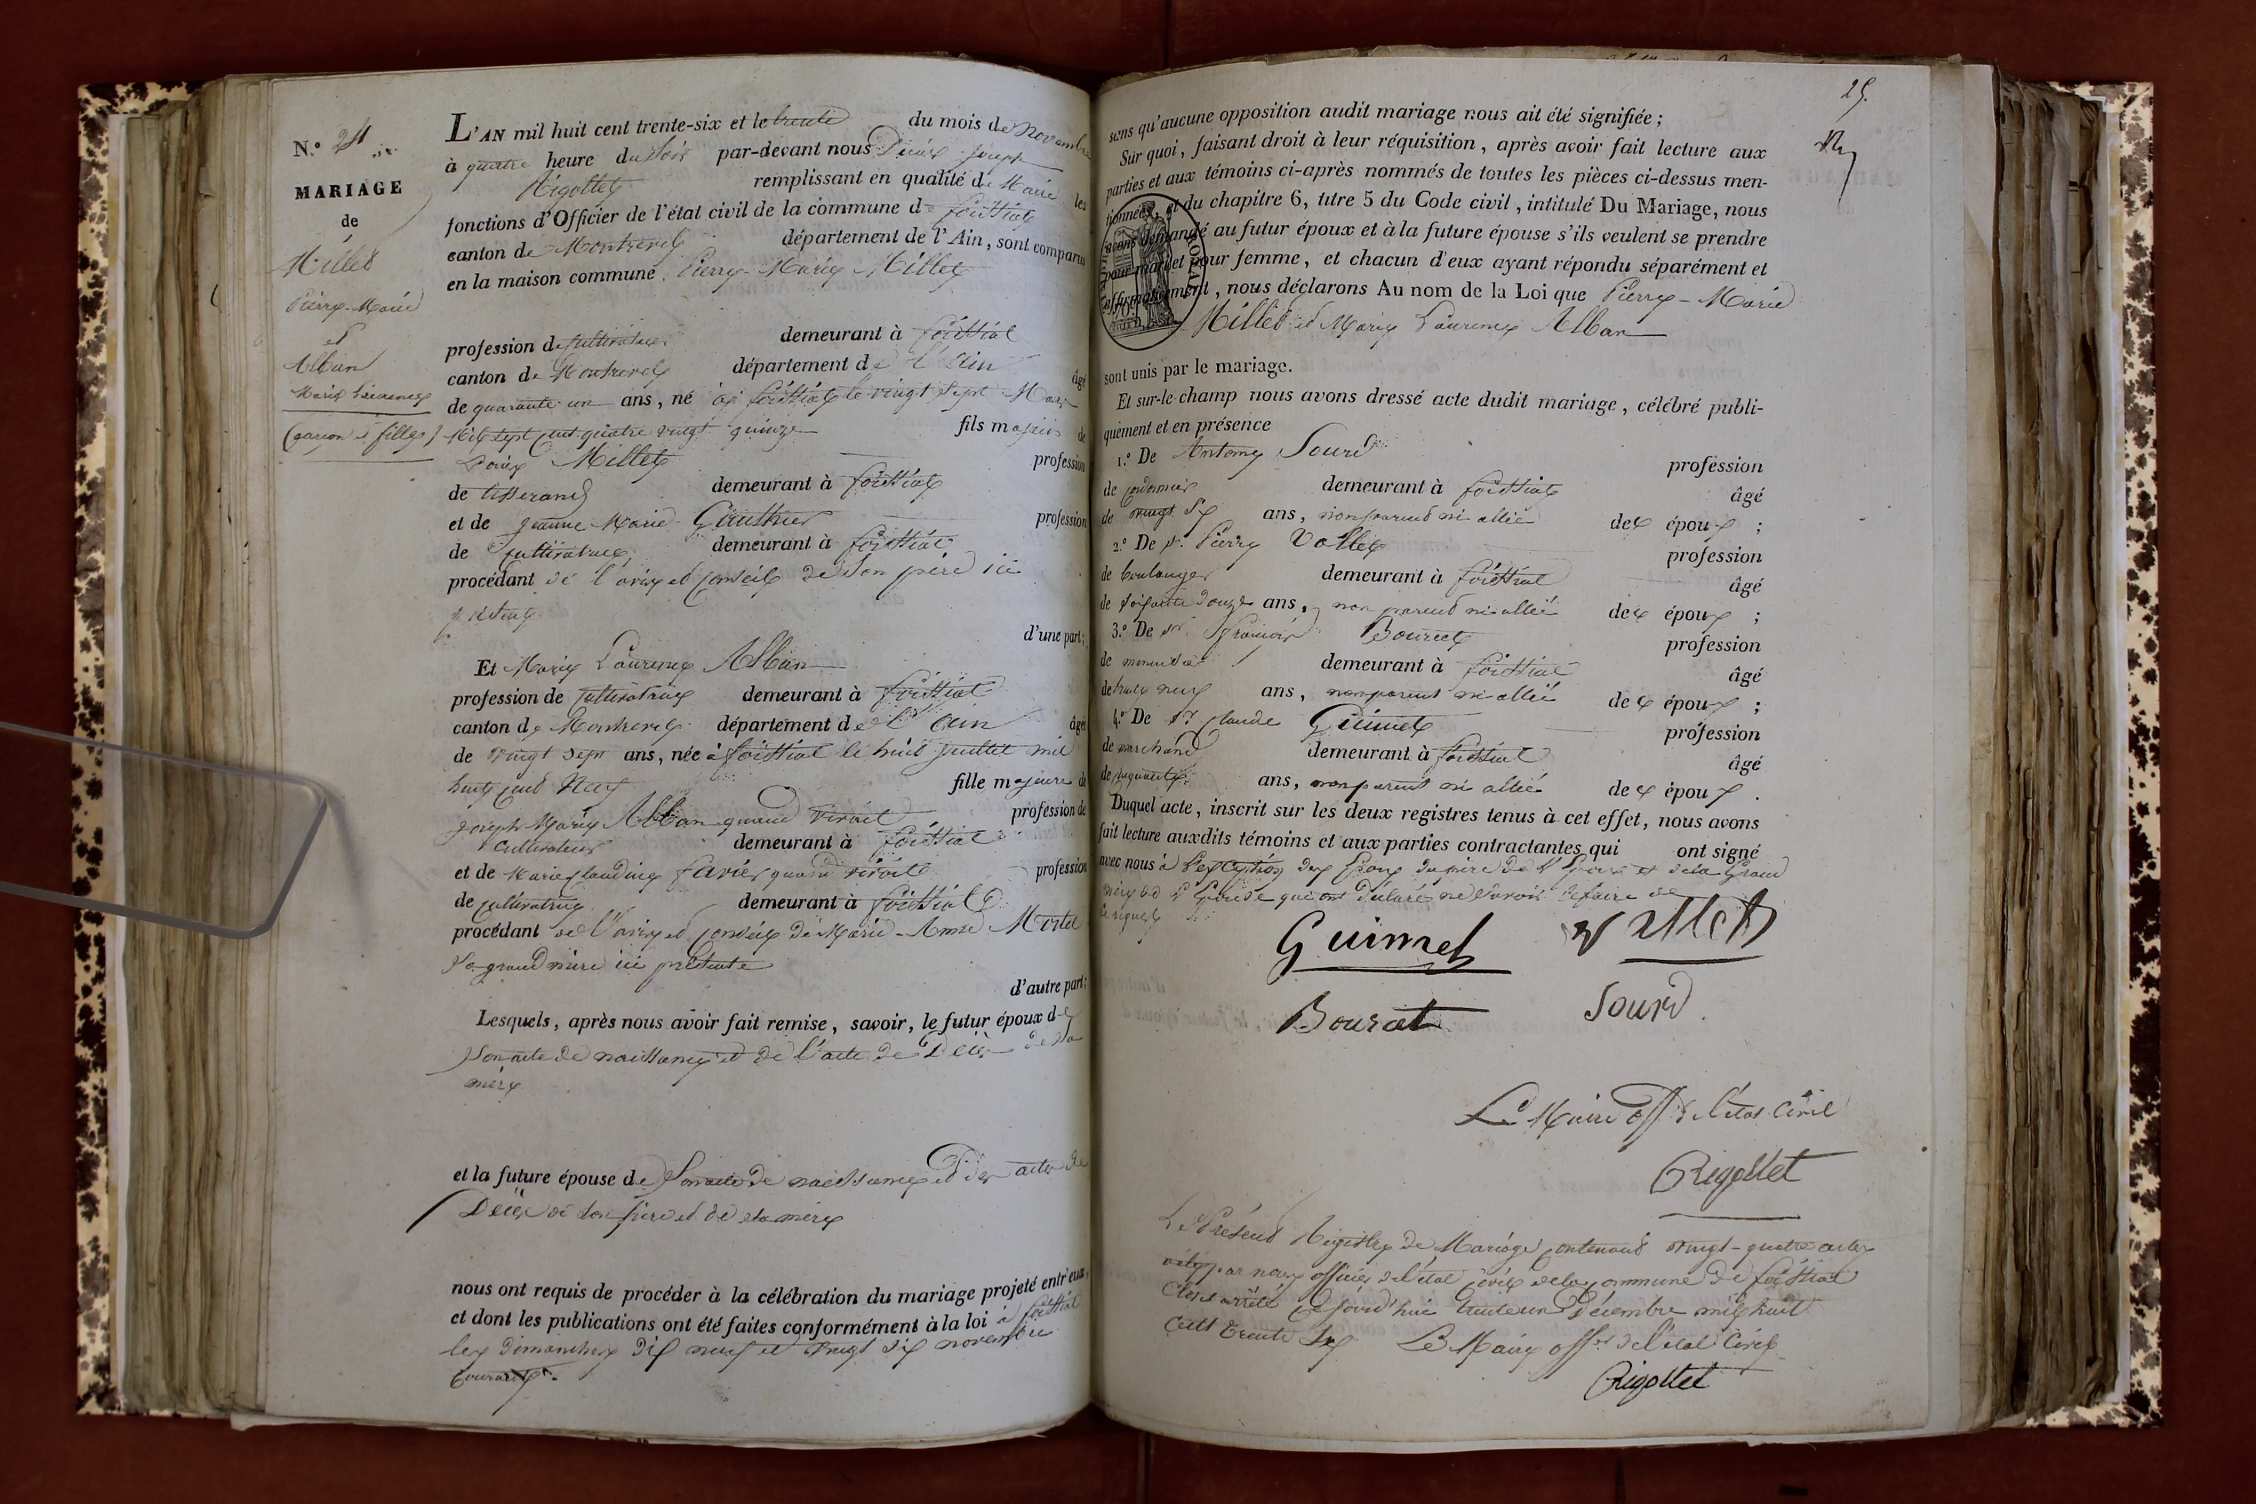 N.º 24
MARIAGE
de
Millet
Pierre-Marie
et
Alban
Marie Laurence
(garçon & fille)
L'AN mil huit cent trente-six et le trente du mois de novembre
à quatre heure du soir par-devant nous Joseph
Rigollet remplissant en qualité de Maire les
fonctions d'Officier de l'état civil de la commune de foissiat
canton de Montrevel département de l'Ain, sont comparus
en la maison commune Pierre-Marie Millet
profession de cultivateur demeurant à foissiat
canton de Montrevel département de l'ain âgé
de quarante un ans, né à foissiat le vingt sept Mars
Mil sept cent quatre vingt quinze fils majeur de
Millet profession
de tisserand demeurant à foissiat
et de jeanne Marie Gauthier profession
de cultivatrice demeurant à foissiat
procédant de l'avis et conseil de son père ici
présent
d'une part;
Et Marie Laurence Alban
profession de cultivatrice demeurant à foissiat
canton de Montrevel département de l'ain âgée
de vingt sept ans, née à foissiat le huit juillet mil
huit cent Neuf fille majeure de
joseph Marie Alban quand vivait profession de
cultivateur demeurant à foissiat
et de Marie Claudine favier quand vivait profession
de cultivatrice demeurant à foissiat
procédant de l'avis et conseil de Marie-Anne
sa grand mère ici présente
d'autre part;
Lesquels, après nous avoir fait remise, savoir, le futur époux de
son acte de naissance et de l'acte de Décès de sa
mère
et la future épouse de son acte de naissance et des actes de
Décès de son père et de sa mère
nous ont requis de procéder à la célébration du mariage projeté entr'eux,
et dont les publications ont été faites conformément à la loi à foissiat
les dimanches et vingt novembre
courant.
25.
sans qu'aucune opposition audit mariage nous ait été signifiée;
Sur quoi, faisant droit à leur réquisition, après avoir fait lecture aux
parties et aux témoins ci-après nommés de toutes les pièces ci-dessus men-
tionnées, et du chapitre 6, titre 5 du Code civil, intitulé Du Mariage, nous
avons demandé au futur époux et à la future épouse s'ils veulent se prendre
pour mari et pour femme, et chacun d'eux ayant répondu séparément et
affirmativement, nous déclarons Au nom de la Loi que Pierre-Marie
Millet et Marie Laurence Alban
sont unis par le mariage.
Et sur-le champ nous avons dressé acte dudit mariage, célébré publi-
quement et en présence
1.º De Antoine Sourd profession
de cordonnier demeurant à foissiat âgé
de vingt six ans, non parent ni allié des époux;
2.º De sr. Pierre Vallet profession
de boulanger demeurant à foissiat âgé
de soixante douze ans, non parent ni allié des époux;
3.º De sr. françois Bourcet profession
de menuisier demeurant à foissiat âgé
de trente neuf ans, non parent ni allié des époux;
4.º De sr claude Guimet profession
de marchand demeurant à foissiat âgé
de cinquante ans, non parent ni allié des époux.
Duquel acte, inscrit sur les deux registres tenus à cet effet, nous avons
fait lecture auxdits témoins et aux parties contractantes qui ont signé
avec nous à l'exception des Epoux du père de l'Epoux et de la Grand
mère de l'Epouse qui ont déclaré ne savoir le faire de
ce requis
Guimet Vallet
Bourcet Sourd
Le Maire off. de l'état Civil
Rigollet
Le Présent Registre de Mariage contenant vingt-quatre actes
par nous officier de l'état civil de la commune de foissiat
Clos et arrêté ce jourd'hui trente un Décembre mil huit
cent trente six Le Maire offer de l'état Civil
Rigollet